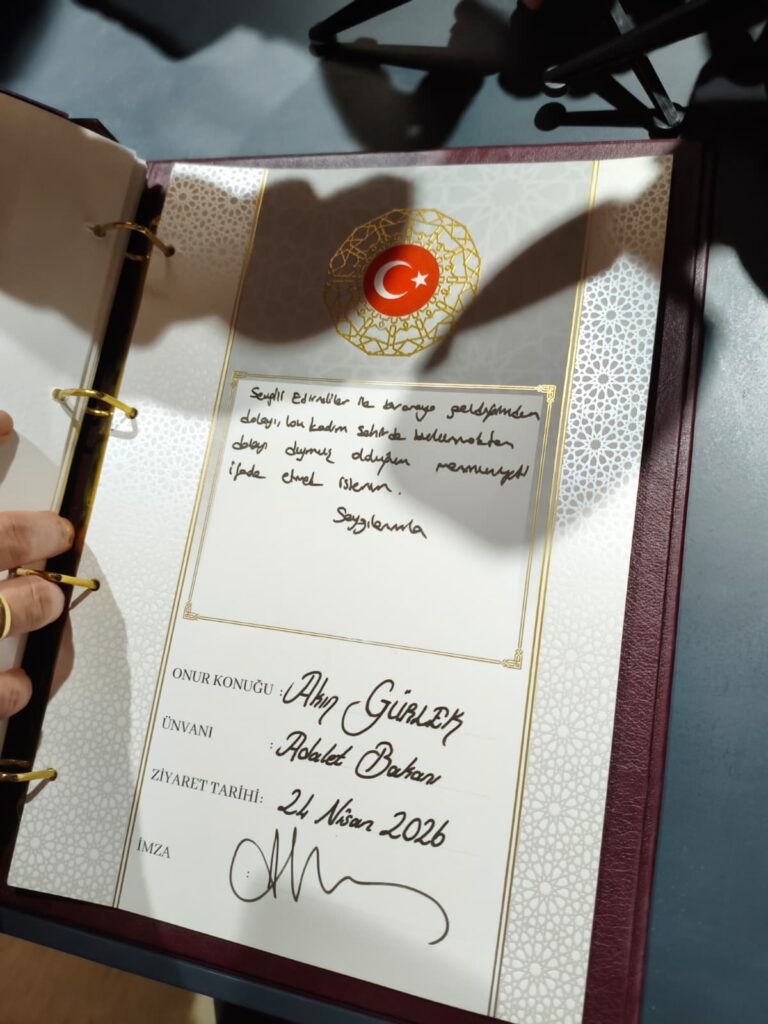 Sevgili Edirneliler ile biraraya geldiğimden
dolayı, bu kadim şehirde bulunmaktan
dolayı duymuş olduğum memnuniyeti
ifade etmek isterim.
Saygılarımla
ONUR KONUĞU : Akın GÜRLEK
ÜNVANI : Adalet Bakanı
ZİYARET TARİHİ: 24 Nisan 2026
İMZA :